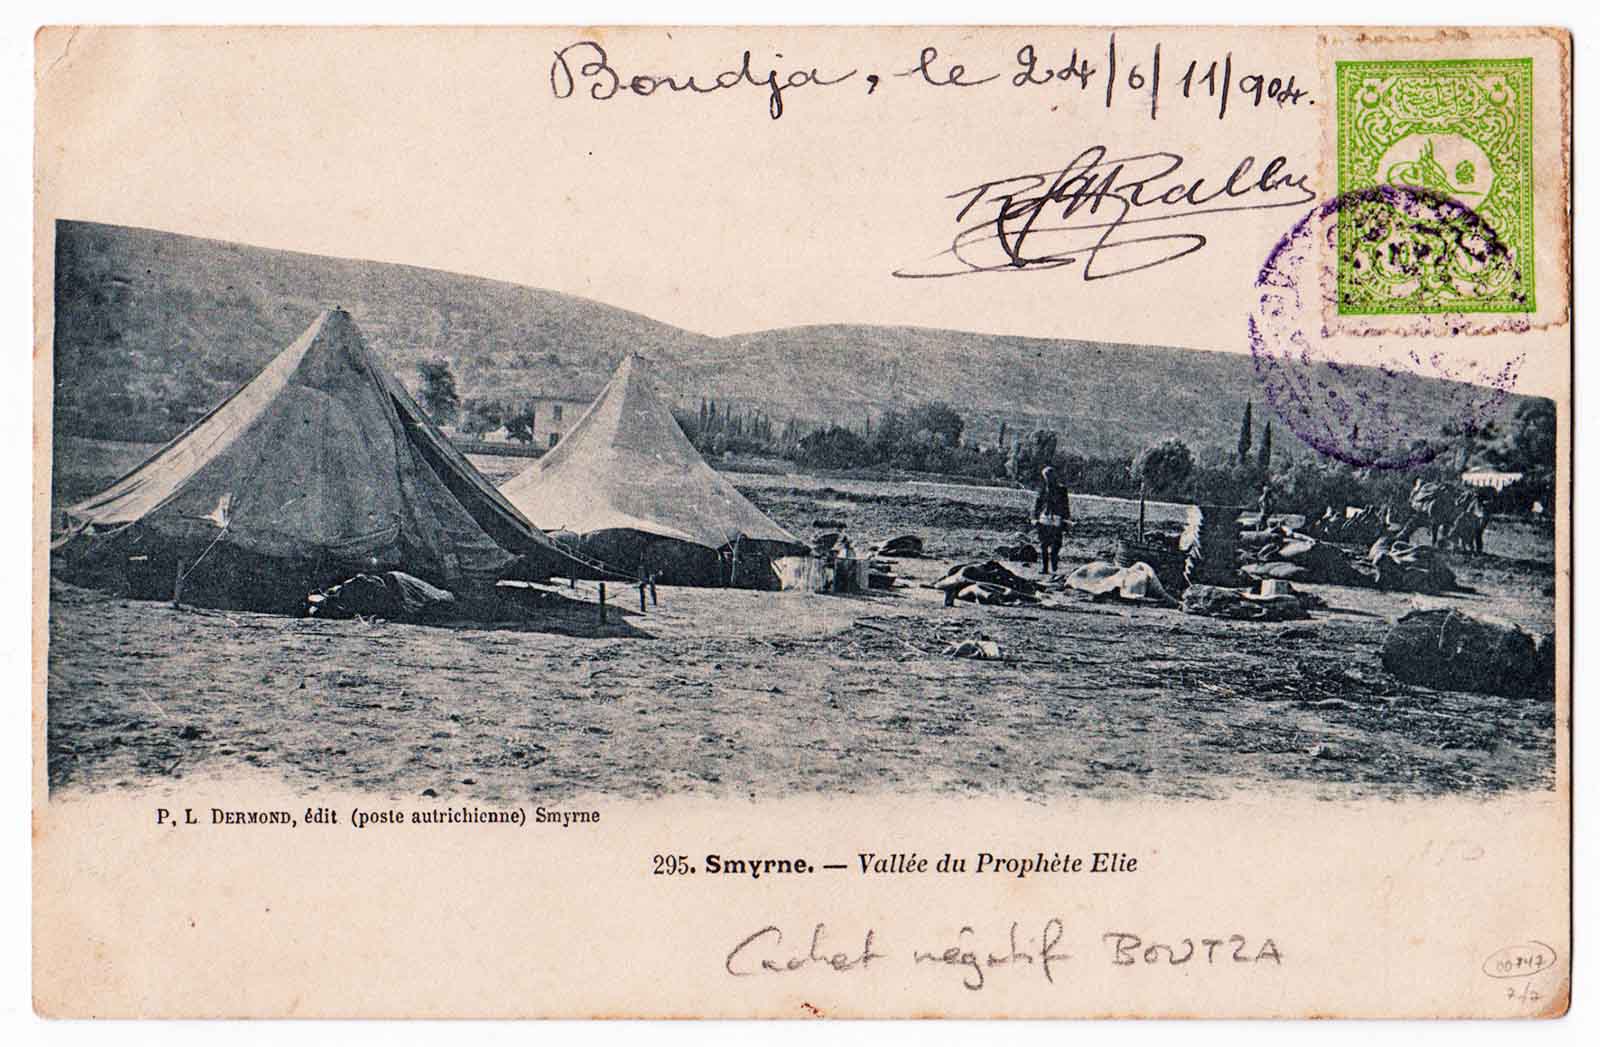 Boudja, le 24/6/11/904.
P, L. DERMOND, édit. (poste autrichienne) Smyrne
295. Smyrne. — Vallée du Prophète Elie
Cachet négatif BOUTZA
00747
7/7